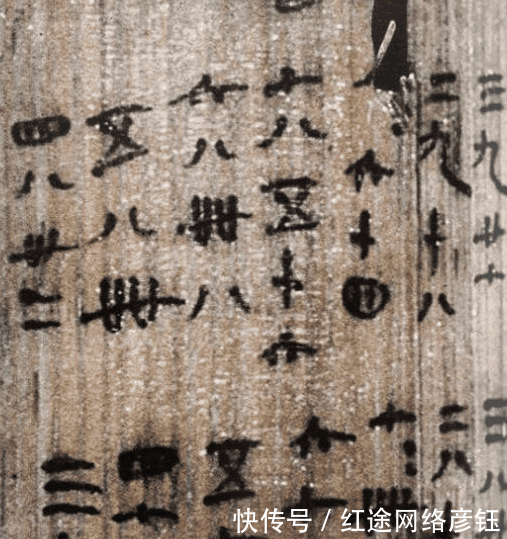 三九廿七
二九十八
六十四
七八五十六
六八卌八
五八卌
四八卅二
三八
二八
七
六七
五
四七
三
快传号 / 红途网络彦钰